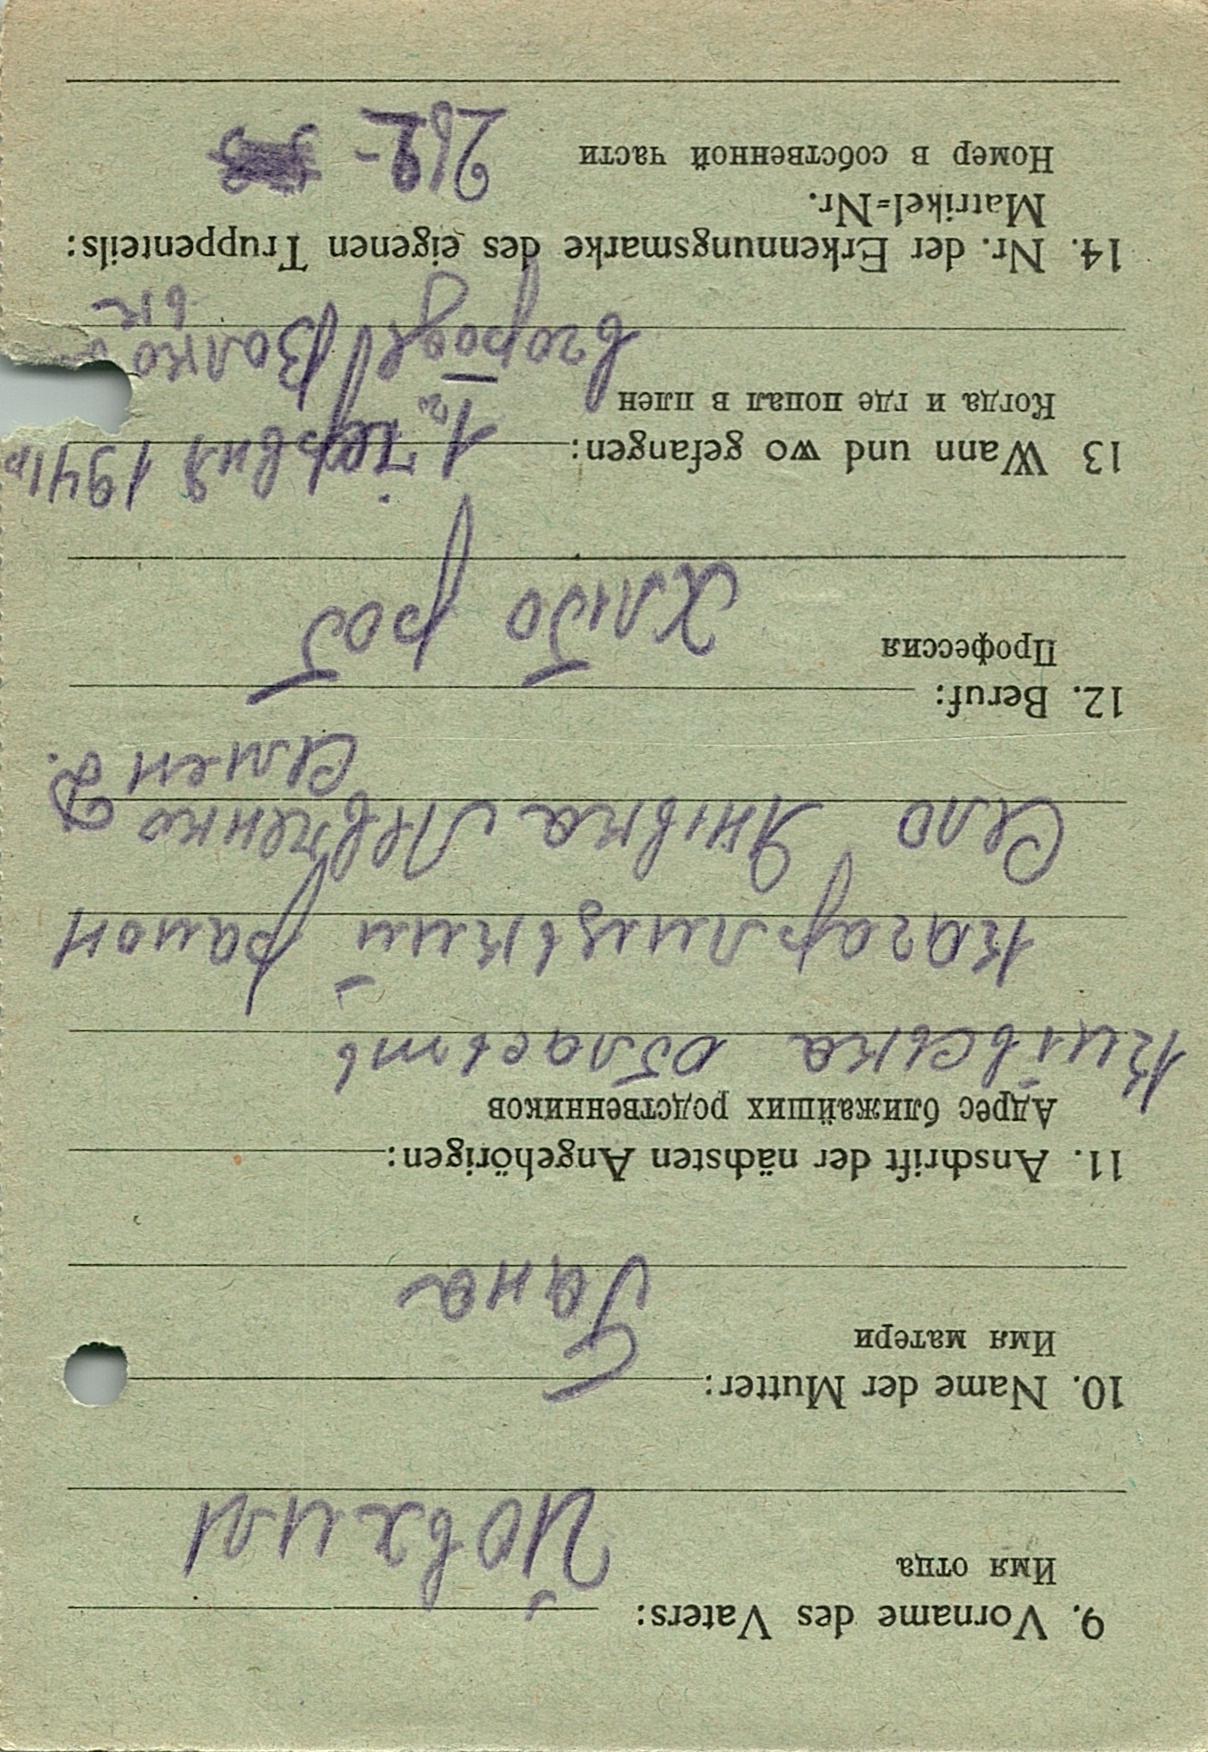 9. Vorname des Vaters:
Имя отца
Йовхим
10. Name der Mutter:
Имя матери
Гана
11. Anschrift der nächsten Angehörigen:
Адрес ближайших родственников
Київська область
кагарлицький район
Село Янівка Левченко
Семен
12. Beruf:
Профессия
Хлібо роб
13 Wann und wo gefangen:
Когда и где попал в плен
1 червня 1941р
вгороде Волко
14. Nr. der Erkennungsmarke des eigenen Truppenteils:
Matrikel=Nr.
Номер в собственной части